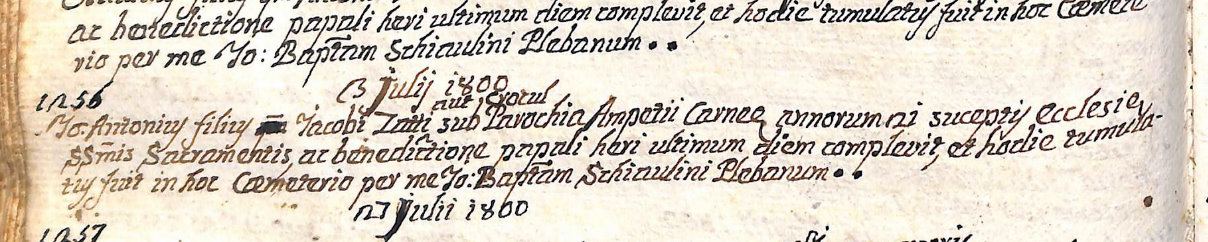 ac benedictione papali heri ultimum diem complevit, et hodie tumulatus fuit in hoc Cœmete
rio per me Jo: Baptam Schiaulini Plebanum..
13 Julij 1800
1256 aut Crocul
Jo: Antonius filius Jacobi Zatti sub Parochia Ampetii Carnee annorum 21 suceptis Ecclesie
SSmis Sacramentis, ac benedictione papali heri ultimum diem complevit, et hodie tumula-
tus fuit in hoc Cœmeterio per me Jo: Baptam Schiaulini Plebanum..
27 Julii 1800
1257